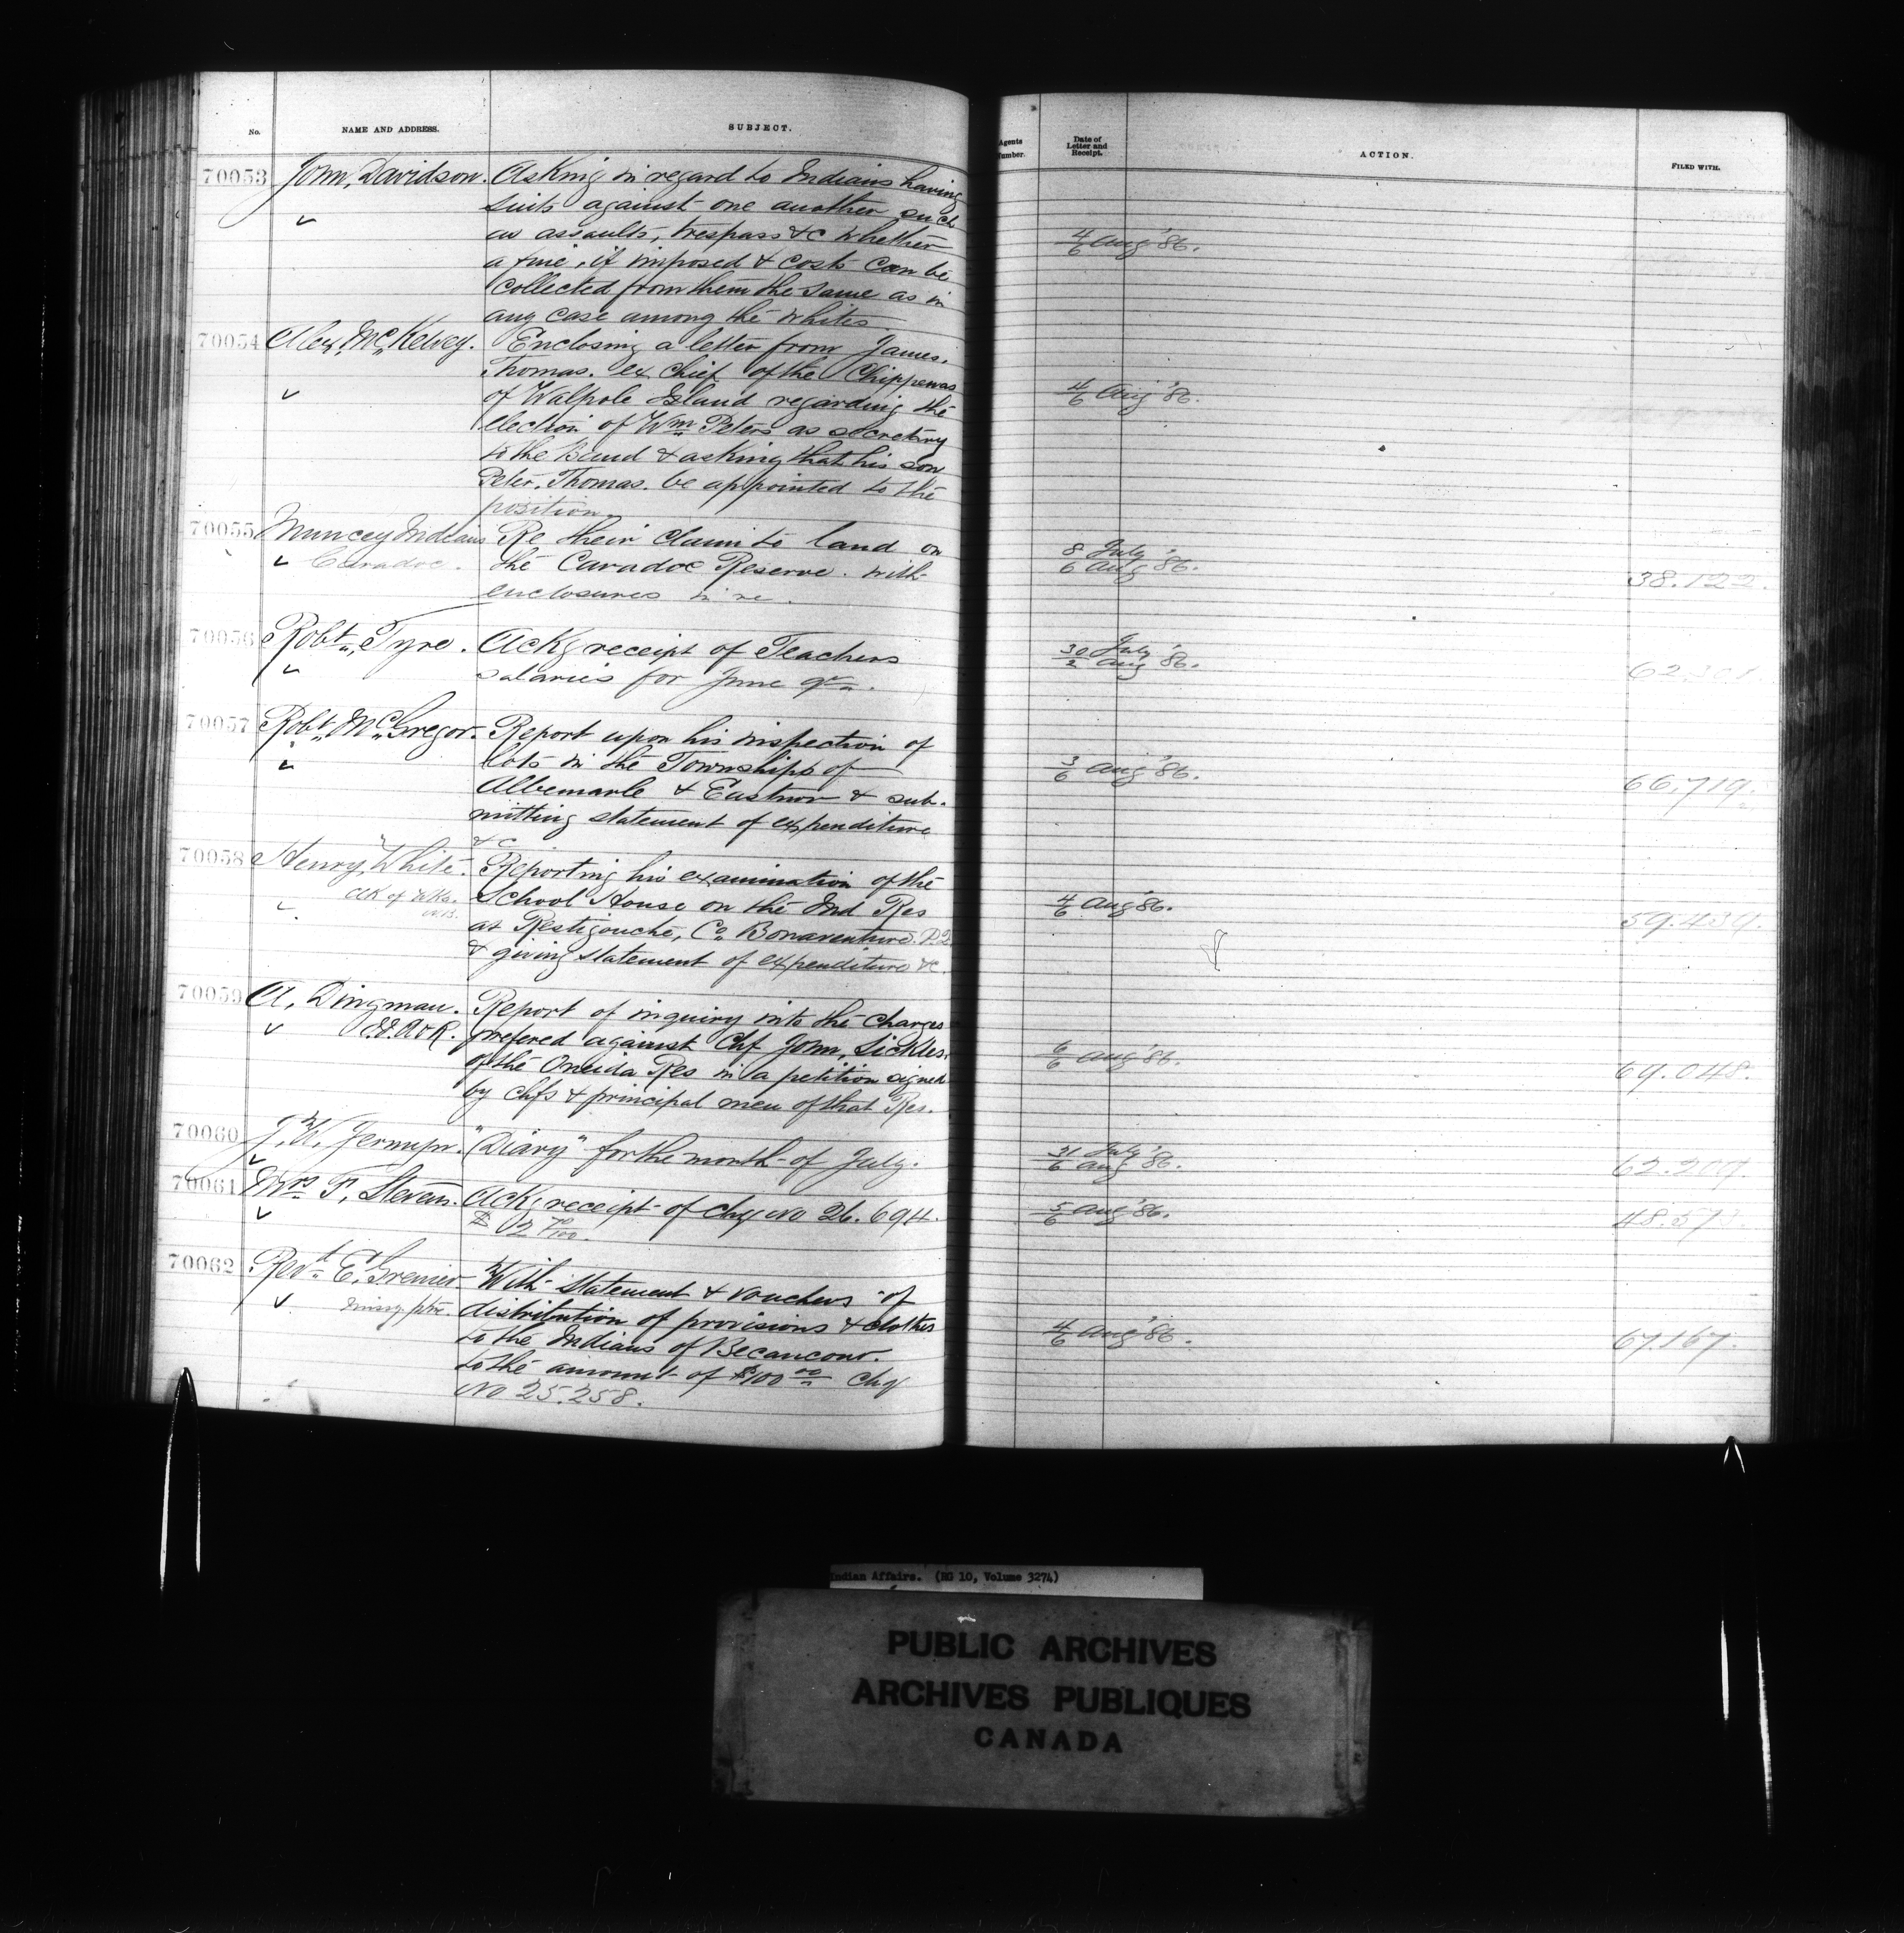 No.
NAME AND ADDRESS.
SUBJECT.
70053
John, Davidson.
Asking in regard to Indians having
suits against one another such
as assaults, trespass &c whether
a fine, if imposed & costs can be
collected from them the same as in
any case among the whites
70054
Alex. McKelvey.
Enclosing a letter from James.
Thomas. ex Chief of the Chippewas
of Walpole Island regarding the
election of Wm Peters as secretary
to the Band & asking that his son
Peter, Thomas. be appointed to the
position.
70055
Muncey Indians
Caradoc.
Re their claim to land on
the Caradoc Reserve. with
enclosures in re.
70056
Robt. Tyre.
Ackg receipt of Teachers
salaries for June qr.
70057
Robt. McGregor.
Report upon his inspection of
lots in the Townships of
Albemarle & Eastnor & sub-
mitting statement of expenditure
&c
70058
Henry, White.
Reporting his examination of the
School House on the Ind Res
at Restigouche, Co. Bonaventure. P.Q
& giving statement of expenditure &c.
70059
A. Dingman.
Report of inquiry into the charges
prefered against Chf John, Sickles.
of the Oneida Res in a petition signed
by chfs & principal men of that Res.
70060
J. W. Jermyn.
"Diary" for the month of July.
70061
Mrs F. Stevens.
Ackg receipt of chq No 26.694.
$
70062
Revd. E. Grenier
Missy ptre.
With statement & vouchers of
distribution of provisions & clothes
to the Indians of Becancour.
to the amount of $100 00 chq
No 25.258.
Agents
Number.
Date of
Letter and
Receipt.
ACTION.
FILED WITH.
4/6 Aug '86.
4/6 Aug '86.
8 July
6 Aug '86.
38.122.
30 July
2 Aug '86.
3/6 Aug '86.
66.719.
4/6 Aug '86.
59.439.
6/6 Aug '86.
69.048.
31 July
6 Aug '86.
62.209.
5/6 Aug '86.
4/6 Aug '86.
67.167.
Indian Affairs. (RG 10, Volume 3274)
PUBLIC ARCHIVES
ARCHIVES PUBLIQUES
CANADA